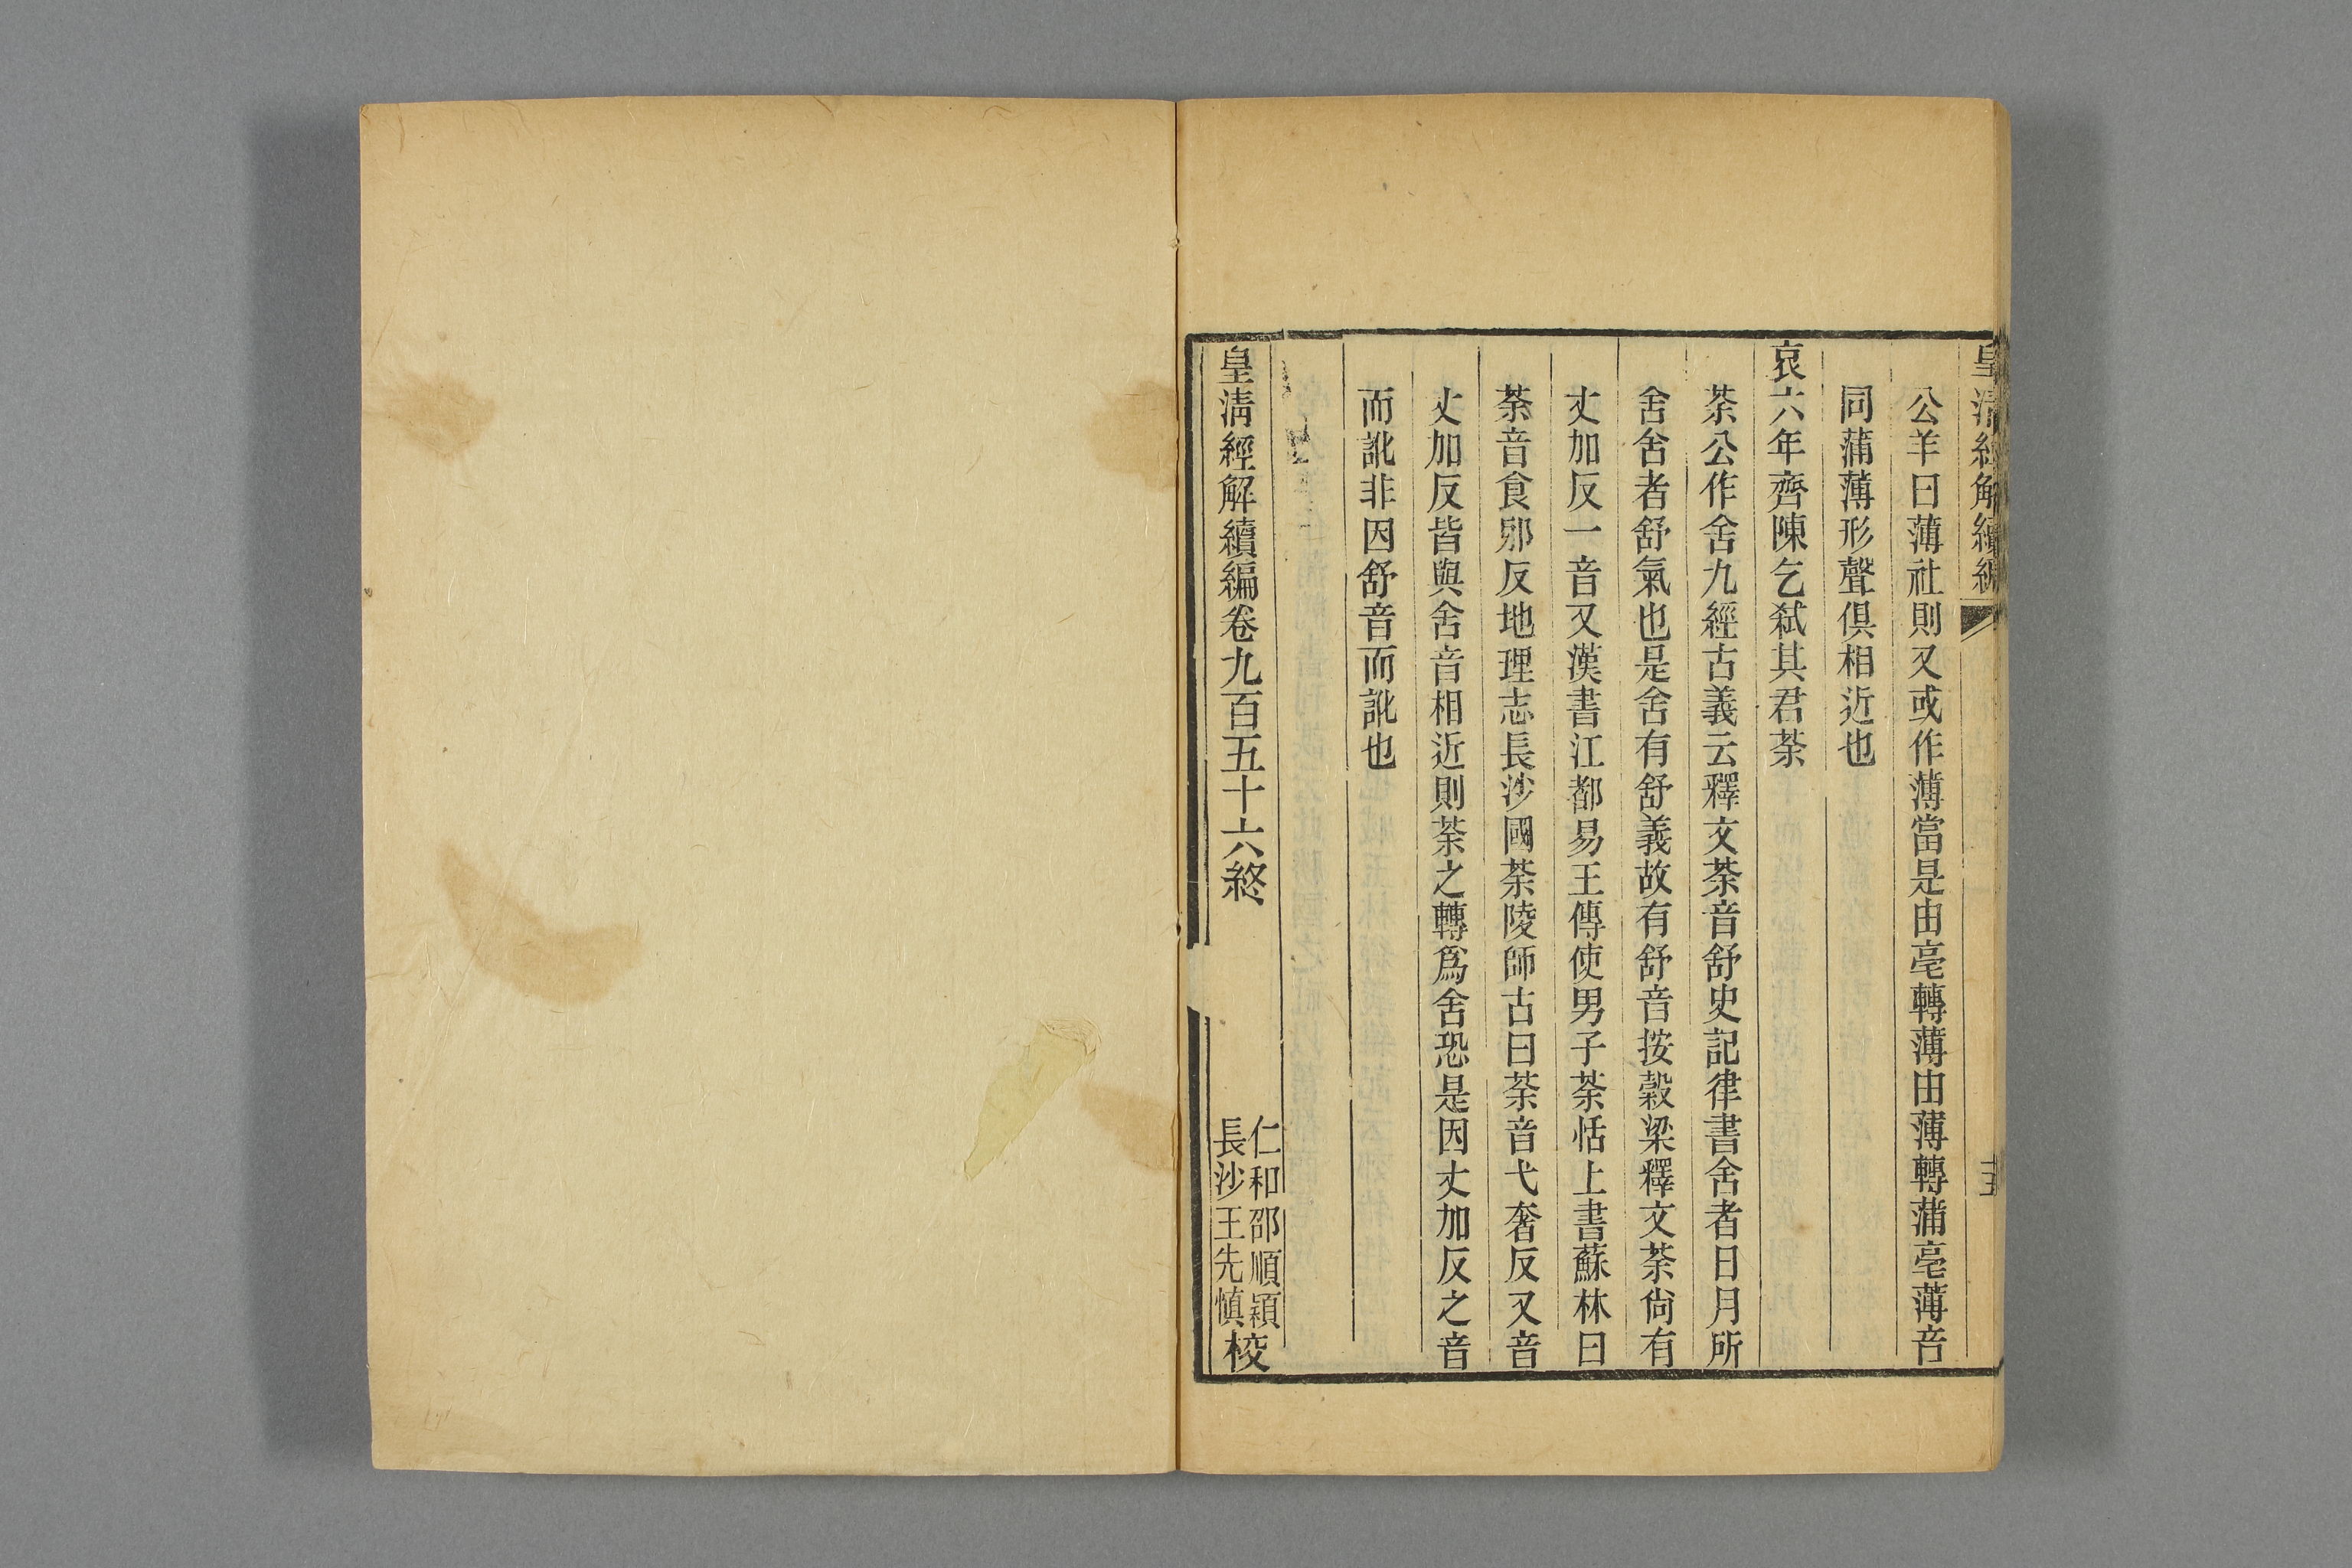 皇清經解續編
十五
公羊曰薄社則又或作薄當是由亳轉薄由薄轉蒲亳薄音
同蒲薄形聲俱相近也
哀六年齊陳乞弒其君荼
荼公作舍九經古義云釋文荼音舒史記律書舍者日月所
舍舍者舒氣也是舍有舒義故有舒音按穀梁釋文荼尙有
丈加反一音又漢書江都易王傳使男子荼恬上書蘇林曰
荼音食邪反地理志長沙國荼陵師古曰荼音弋奢反又音
丈加反皆與舍音相近則荼之轉爲舍恐是因丈加反之音
而訛非因舒音而訛也
皇淸經解續編卷九百五十六終
仁和邵順穎
長沙王先愼校